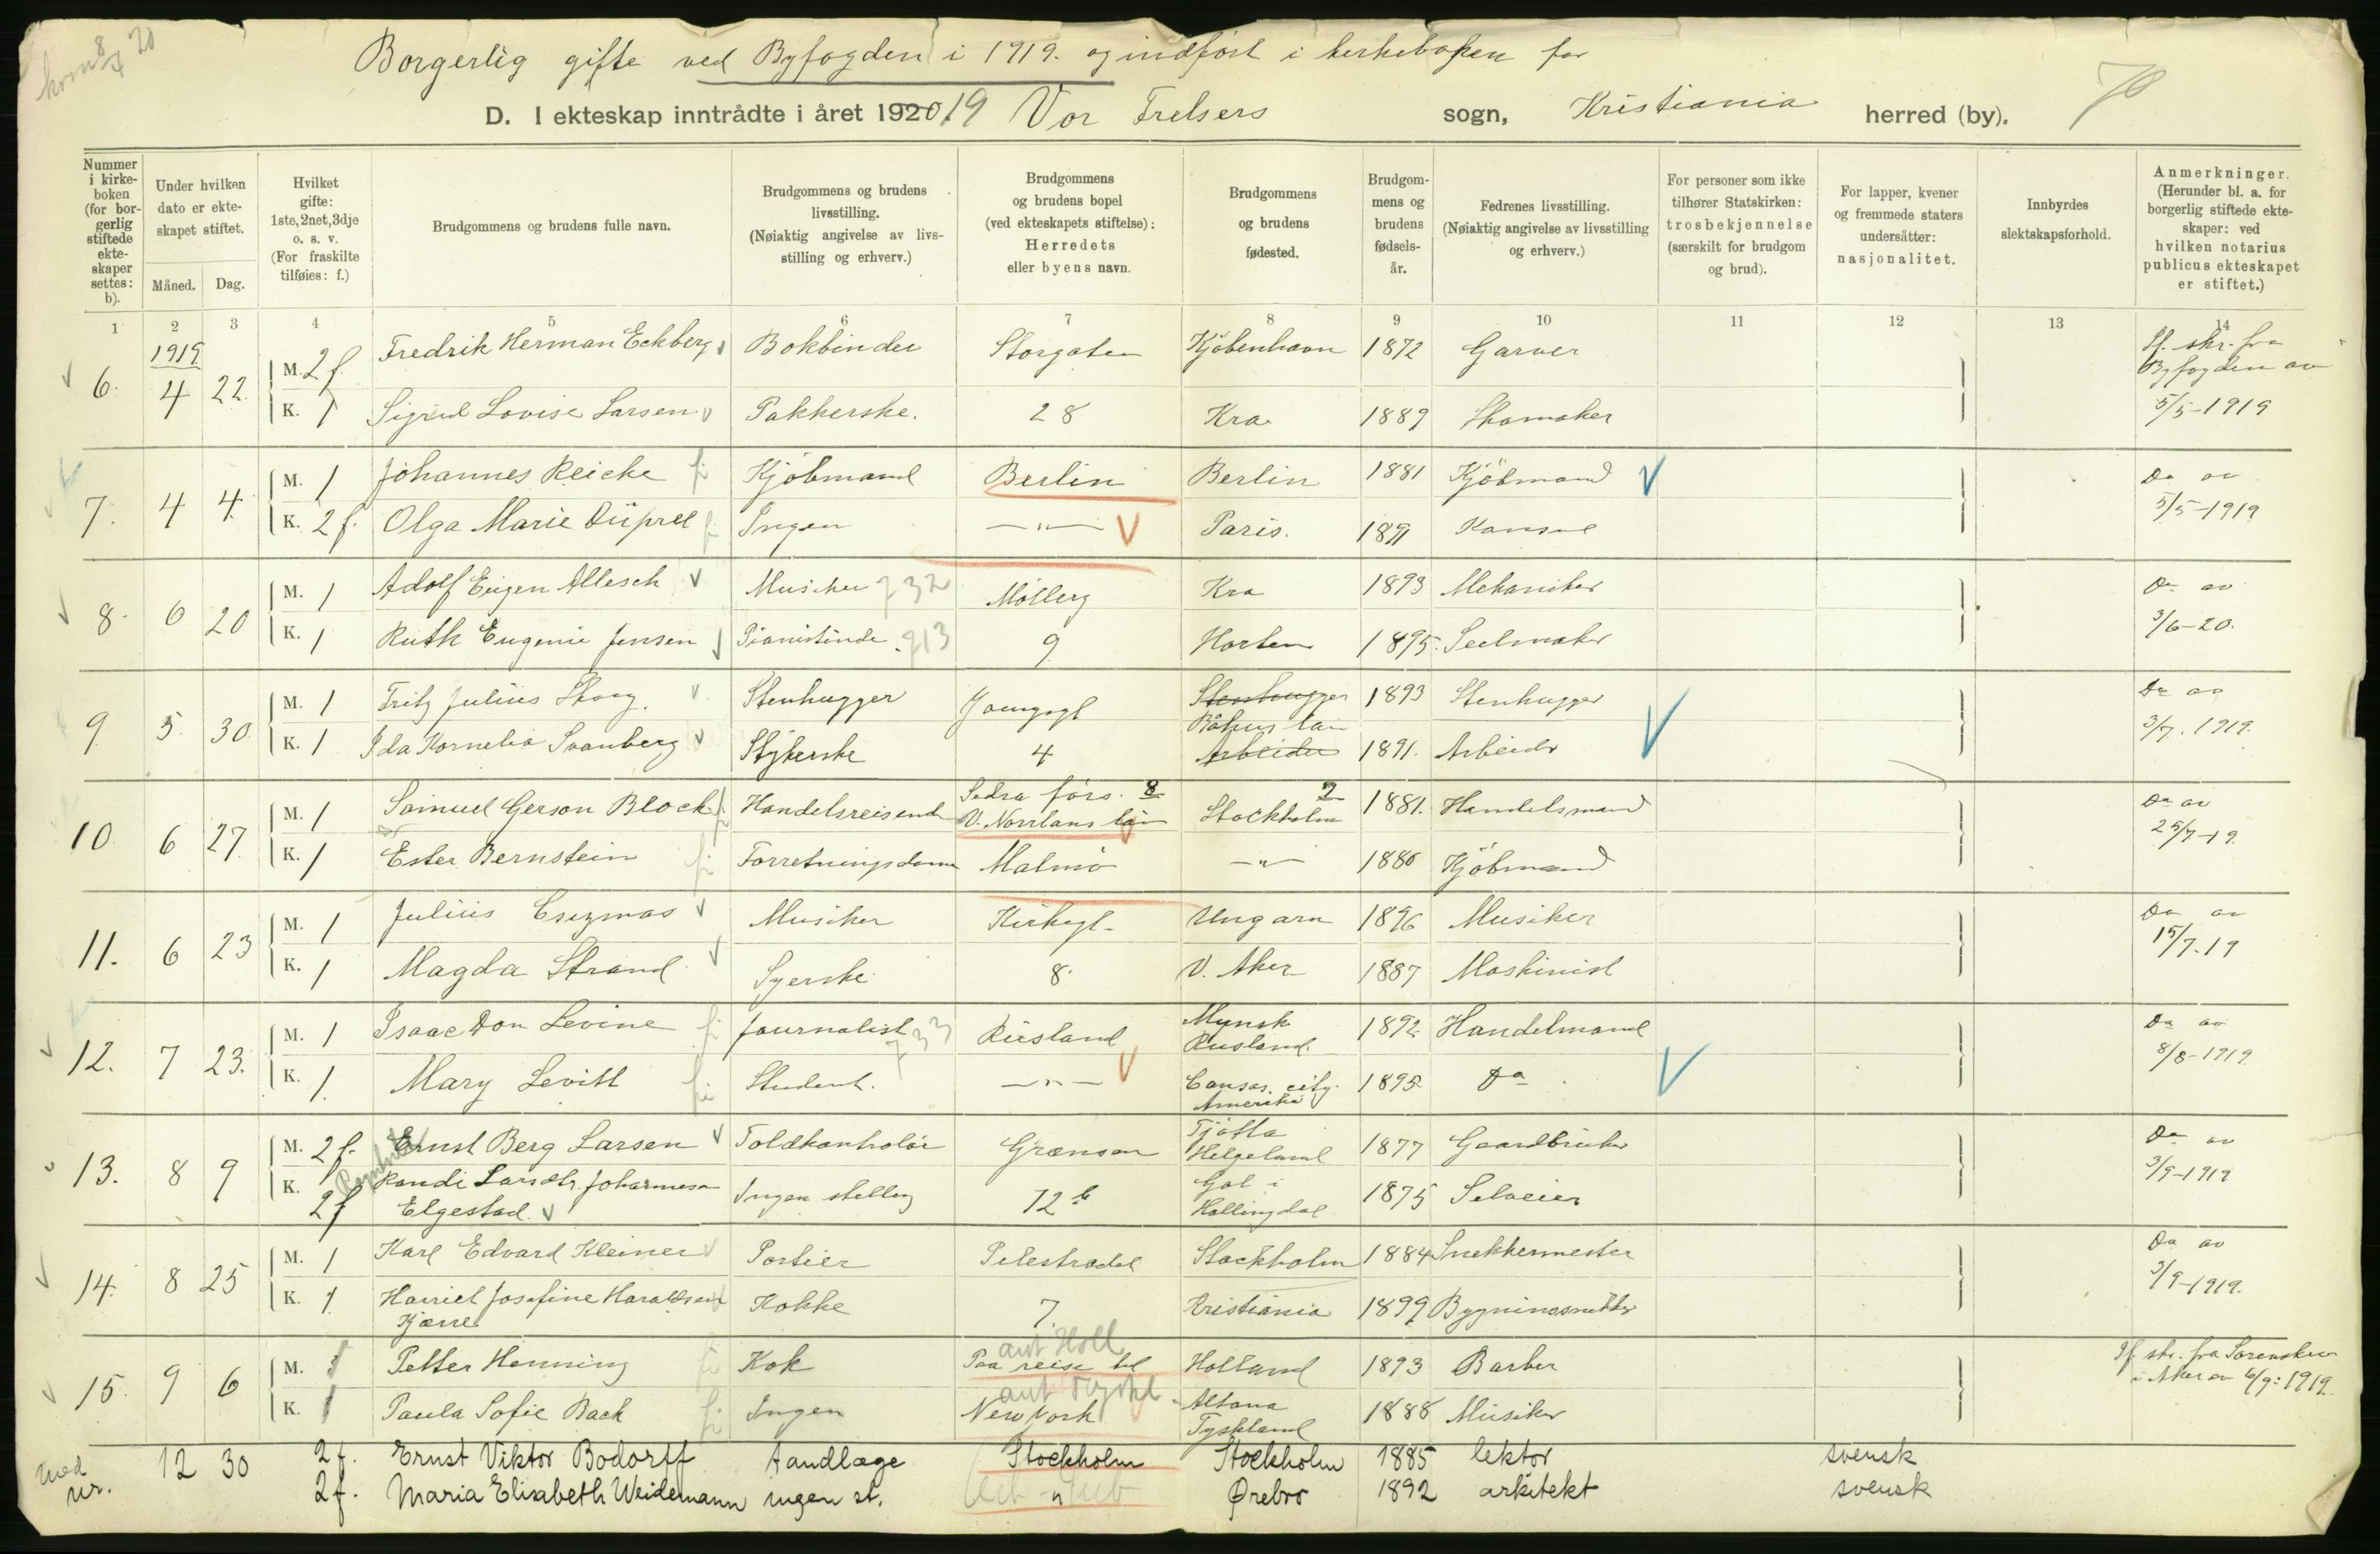 Borgerlig gifte ved Byfogden i 1919. og indført i kirkeboken for
D. I ekteskap inntrådte i året 1920. 19 Vor Frelsers sogn, Kristiania herred (by).
Nummer i kirke-boken (for bor-gerlig stiftede ekte-skaper settes: b).
Under hvilken dato er ekte-skapet stiftet.
Måned. Dag.
Hvilket gifte: 1ste, 2net, 3dje o. s. v. (For fraskilte tilføies: f.)
Brudgommens og brudens fulle navn.
Brudgommens og brudens livsstilling. (Nøiaktig angivelse av livs-stilling og erhverv.)
Brudgommens og brudens bopel (ved ekteskapets stiftelse): Herredets eller byens navn.
Brudgommens og brudens fødested.
Brudgom-mens og brudens fødsels-år.
Fedrenes livsstilling. (Nøiaktig angivelse av livsstilling og erhverv.)
For personer som ikke tilhører Statskirken: trosbekjennelse (særskilt for brudgom og brud).
For lapper, kvener og fremmede staters undersåtter: nasjonalitet.
Innbyrdes slektskapsforhold.
Anmerkninger. (Herunder bl. a. for borgerlig stiftede ekte-skaper: ved hvilken notarius publicus ekteskapet er stiftet.)
1 2 3 4 5 6 7 8 9 10 11 12 13 14
1919
6. 4 22. M. 2 f. Fredrik Herman Eckberg Bokbinder Storgaten Kjøbenhavn 1872 Garver Jf. skr. fra Byfogden av
K. 1 Sigrid Lovise Larsen Pakkerske. 28 Kra. 1889 Skomaker 5/5-1919
7. 4 4. M. 1 Johannes Reicke Kjøbmand Berlin Berlin 1881 Kjøbmand Do av
K. 2 f. Olga Marie Düprel Ingen —"— Paris. 1891 Konsul 5/5-1919
8. 6 20 M. 1 Adolf Eugen Allesch Musiker 732 Møllerg Kra 1893 Mekaniker Do av
K. 1 Ruth Eugenie Jensen Pianistinde. 913 9 Horten 1895. Seelmaker 3/6-20.
9. 5. 30. M. 1 Fritz Julius Skoog. Stenhugger Youngsgt Stenhugger 1893 Stenhugger Do av
Båhus län
K. 1 Ida Kornelia Svanberg Strykerske 4 Arbeider 1891. Arbeider 3/7. 1919.
10. 6 27. M. 1 Samuel Gerson Block Handelsreisende Sedra førs. 8 V. Norrlans län Stockholm 2 1881. Handelsmand Do av
K. 1 Ester Bernstein Forretningsdame Malmø —"— 1880 Kjøbmand 25/7-19.
11. 6 23 M. 1 Julius Csizmas Musiker Kirkegt. Ungarn 1896 Musiker Do av
K. 1 Magda Strand. Syerske. 8. V. Aker 1887 Maskinist 15/7-19
12. 7 23. M. 1 Isaac Don Levine Journalist 733 Rusland Mynsk Rusland. 1892. Handelmand Do av
K. 1. Mary Levitt Student. —"— Cansas city. Amerika 1895. Do. 8/8-1919.
13. 8 9 M. 2 f. Ernst Berg Larsen Toldkontrolør Grænsen Tjøtta Helgeland 1877 Gaardbruker Do av
K. 2 f Randi Larsdtr. Johannessen Ingen stilling 12 b Gol i 1875 Selveier 3/9-1919
Elgestad. Hallingdal
14. 8 25 M. 1 Karl Edvard Kleiner Portier Pilestrædet Stockholm 1884 Snekkermester Do av
K. 1 Harriet Josefine Haraldsen Kokke 7. Kristiania 1899 Bygningssnekker 3/9-1919.
Kjærre
15. 9 6 M. 1 Petter Henning Kok ant Holl Paa reise til Holland 1893 Barber Jf skr. fra Sorenskr. i Aker av 6/9: 1919.
K. 1 Paula Sofie Bach Ingen ant Tyskl New York Altona Tyskland 1888 Musiker
Uten nr. 12 30 2 f. Ernst Viktor Bodorff tandlæge Stockholm Stockholm 1885 lektor svensk
2 f. Maria Elisabeth Weidemann ingen st. " Ørebro 1892 arkitekt svensk